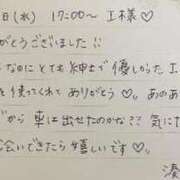 日(水) 17:00〜 I様♡
がとうございました!!
なのにとても紳士で優しかったI
を使ってくれてありがとう♡。あのあ
から車は出せたのかな??気にな
会いできたら嬉しいです♡。
湊